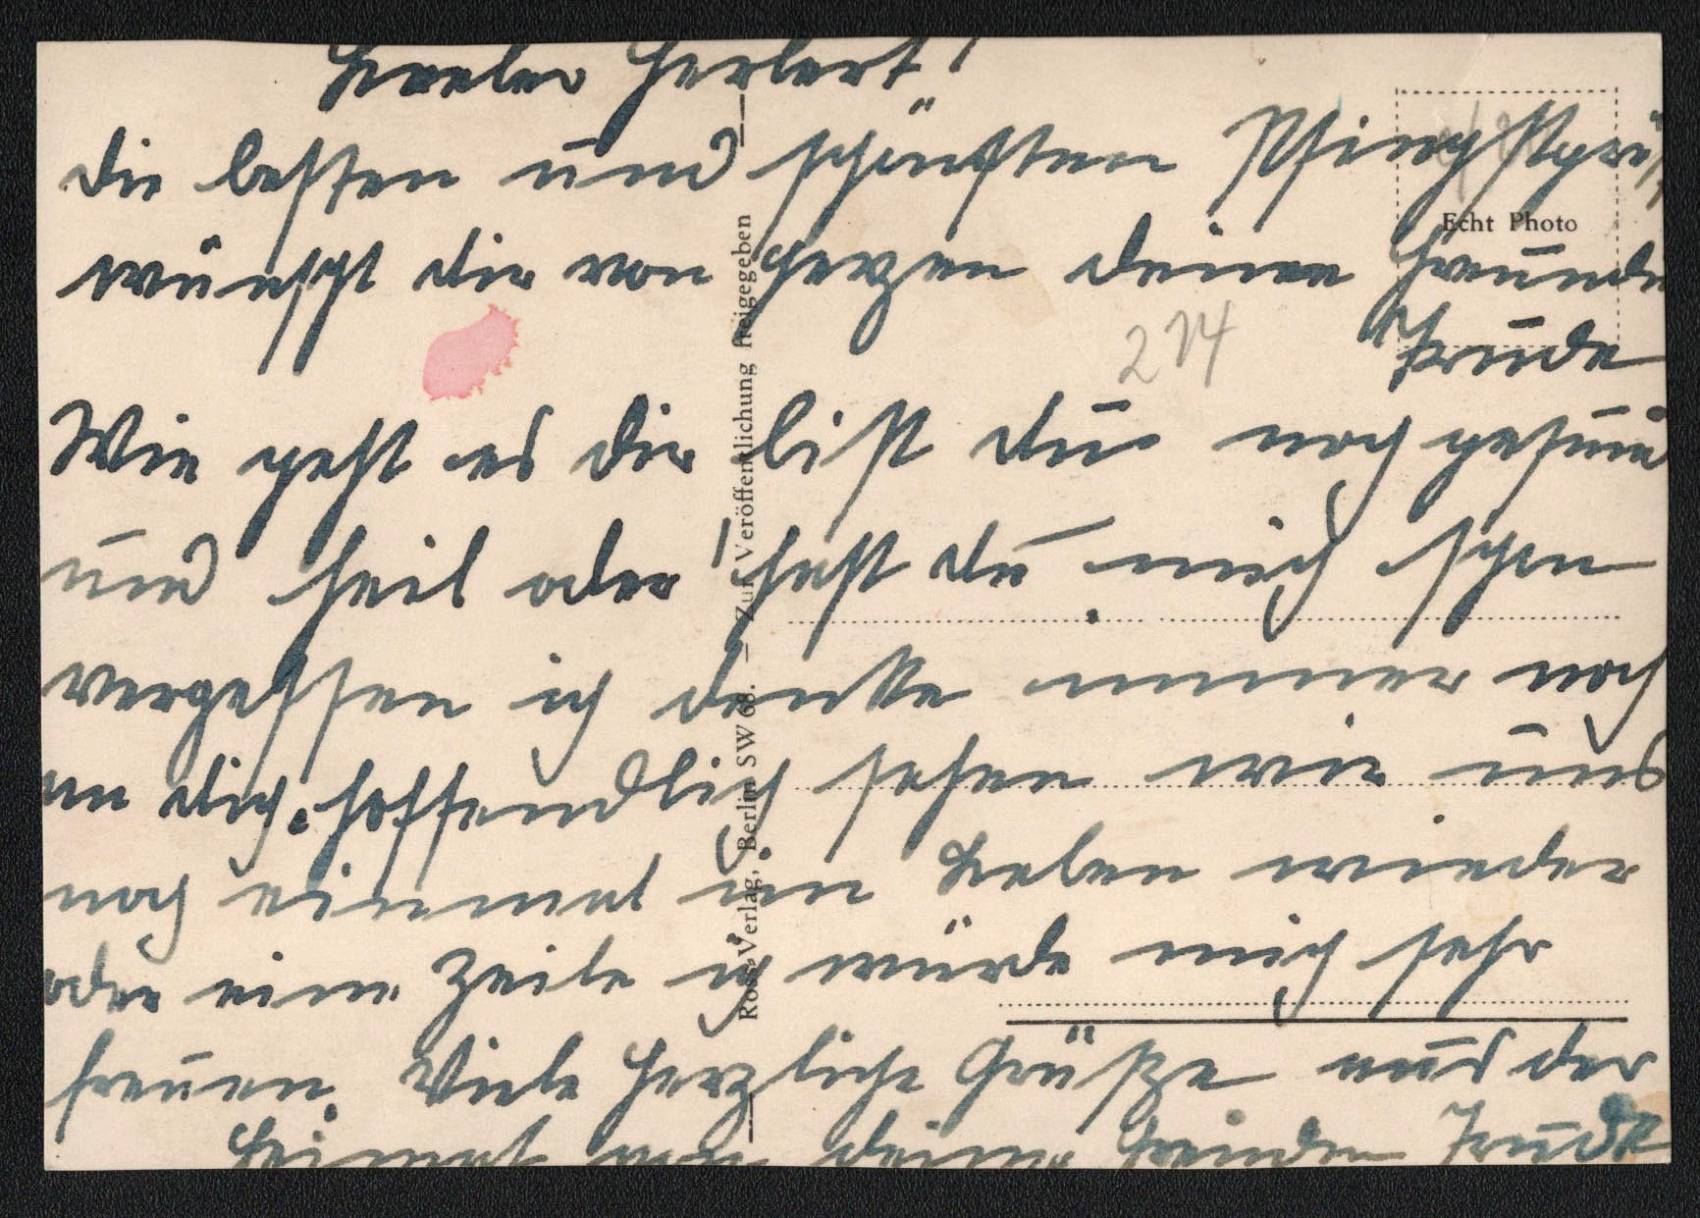 Lieber Herbert!
Die besten und schönsten Pfingstgrüß
wünscht dir von Herzen deine Freundin
Trude
Wie geht es dir bist du noch gesund
und heil oder hast du mich schon
vergessen ich denke immer noch
an dich. hoffendlich sehen wir uns
noch einmal im Leben wieder
oder eine Zeile ich würde mich sehr
freuen. Viele herzliche Grüße aus der
Heimat von deiner Freundin Trude
274
Echt Photo
Ross-Verlag, Berlin SW 68. — Zur Veröffentlichung freigegeben